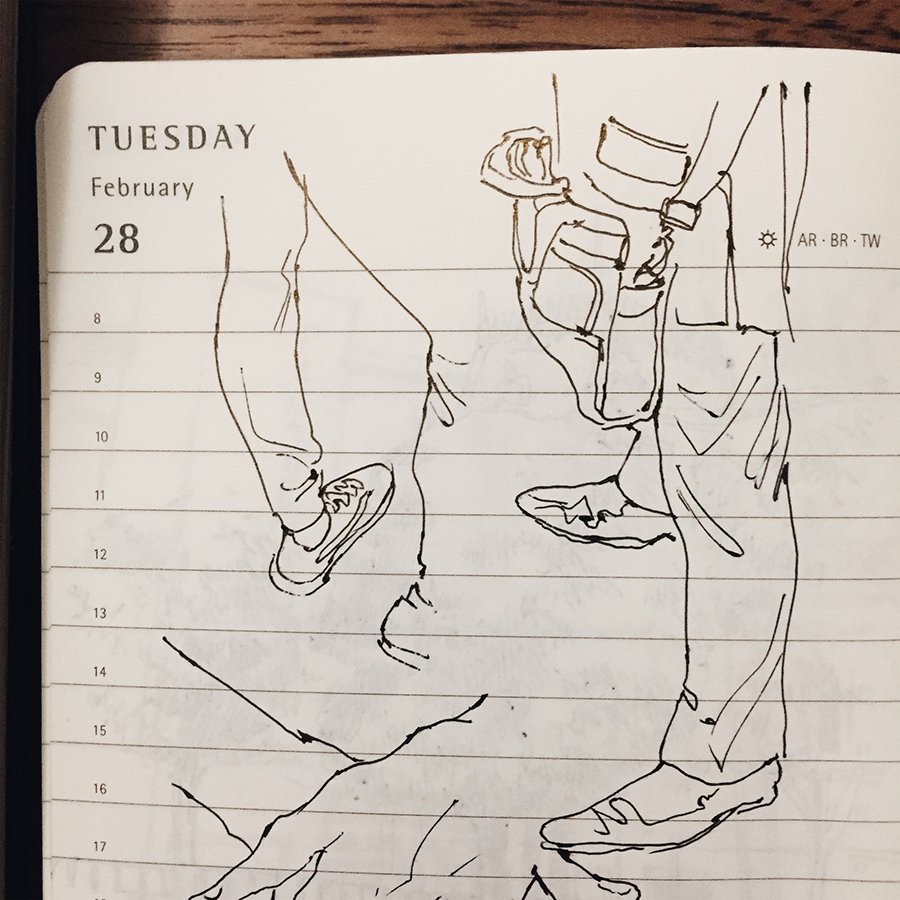 TUESDAY
February
28
☼ AR · BR · TW
8
9
10
11
12
13
14
15
16
17